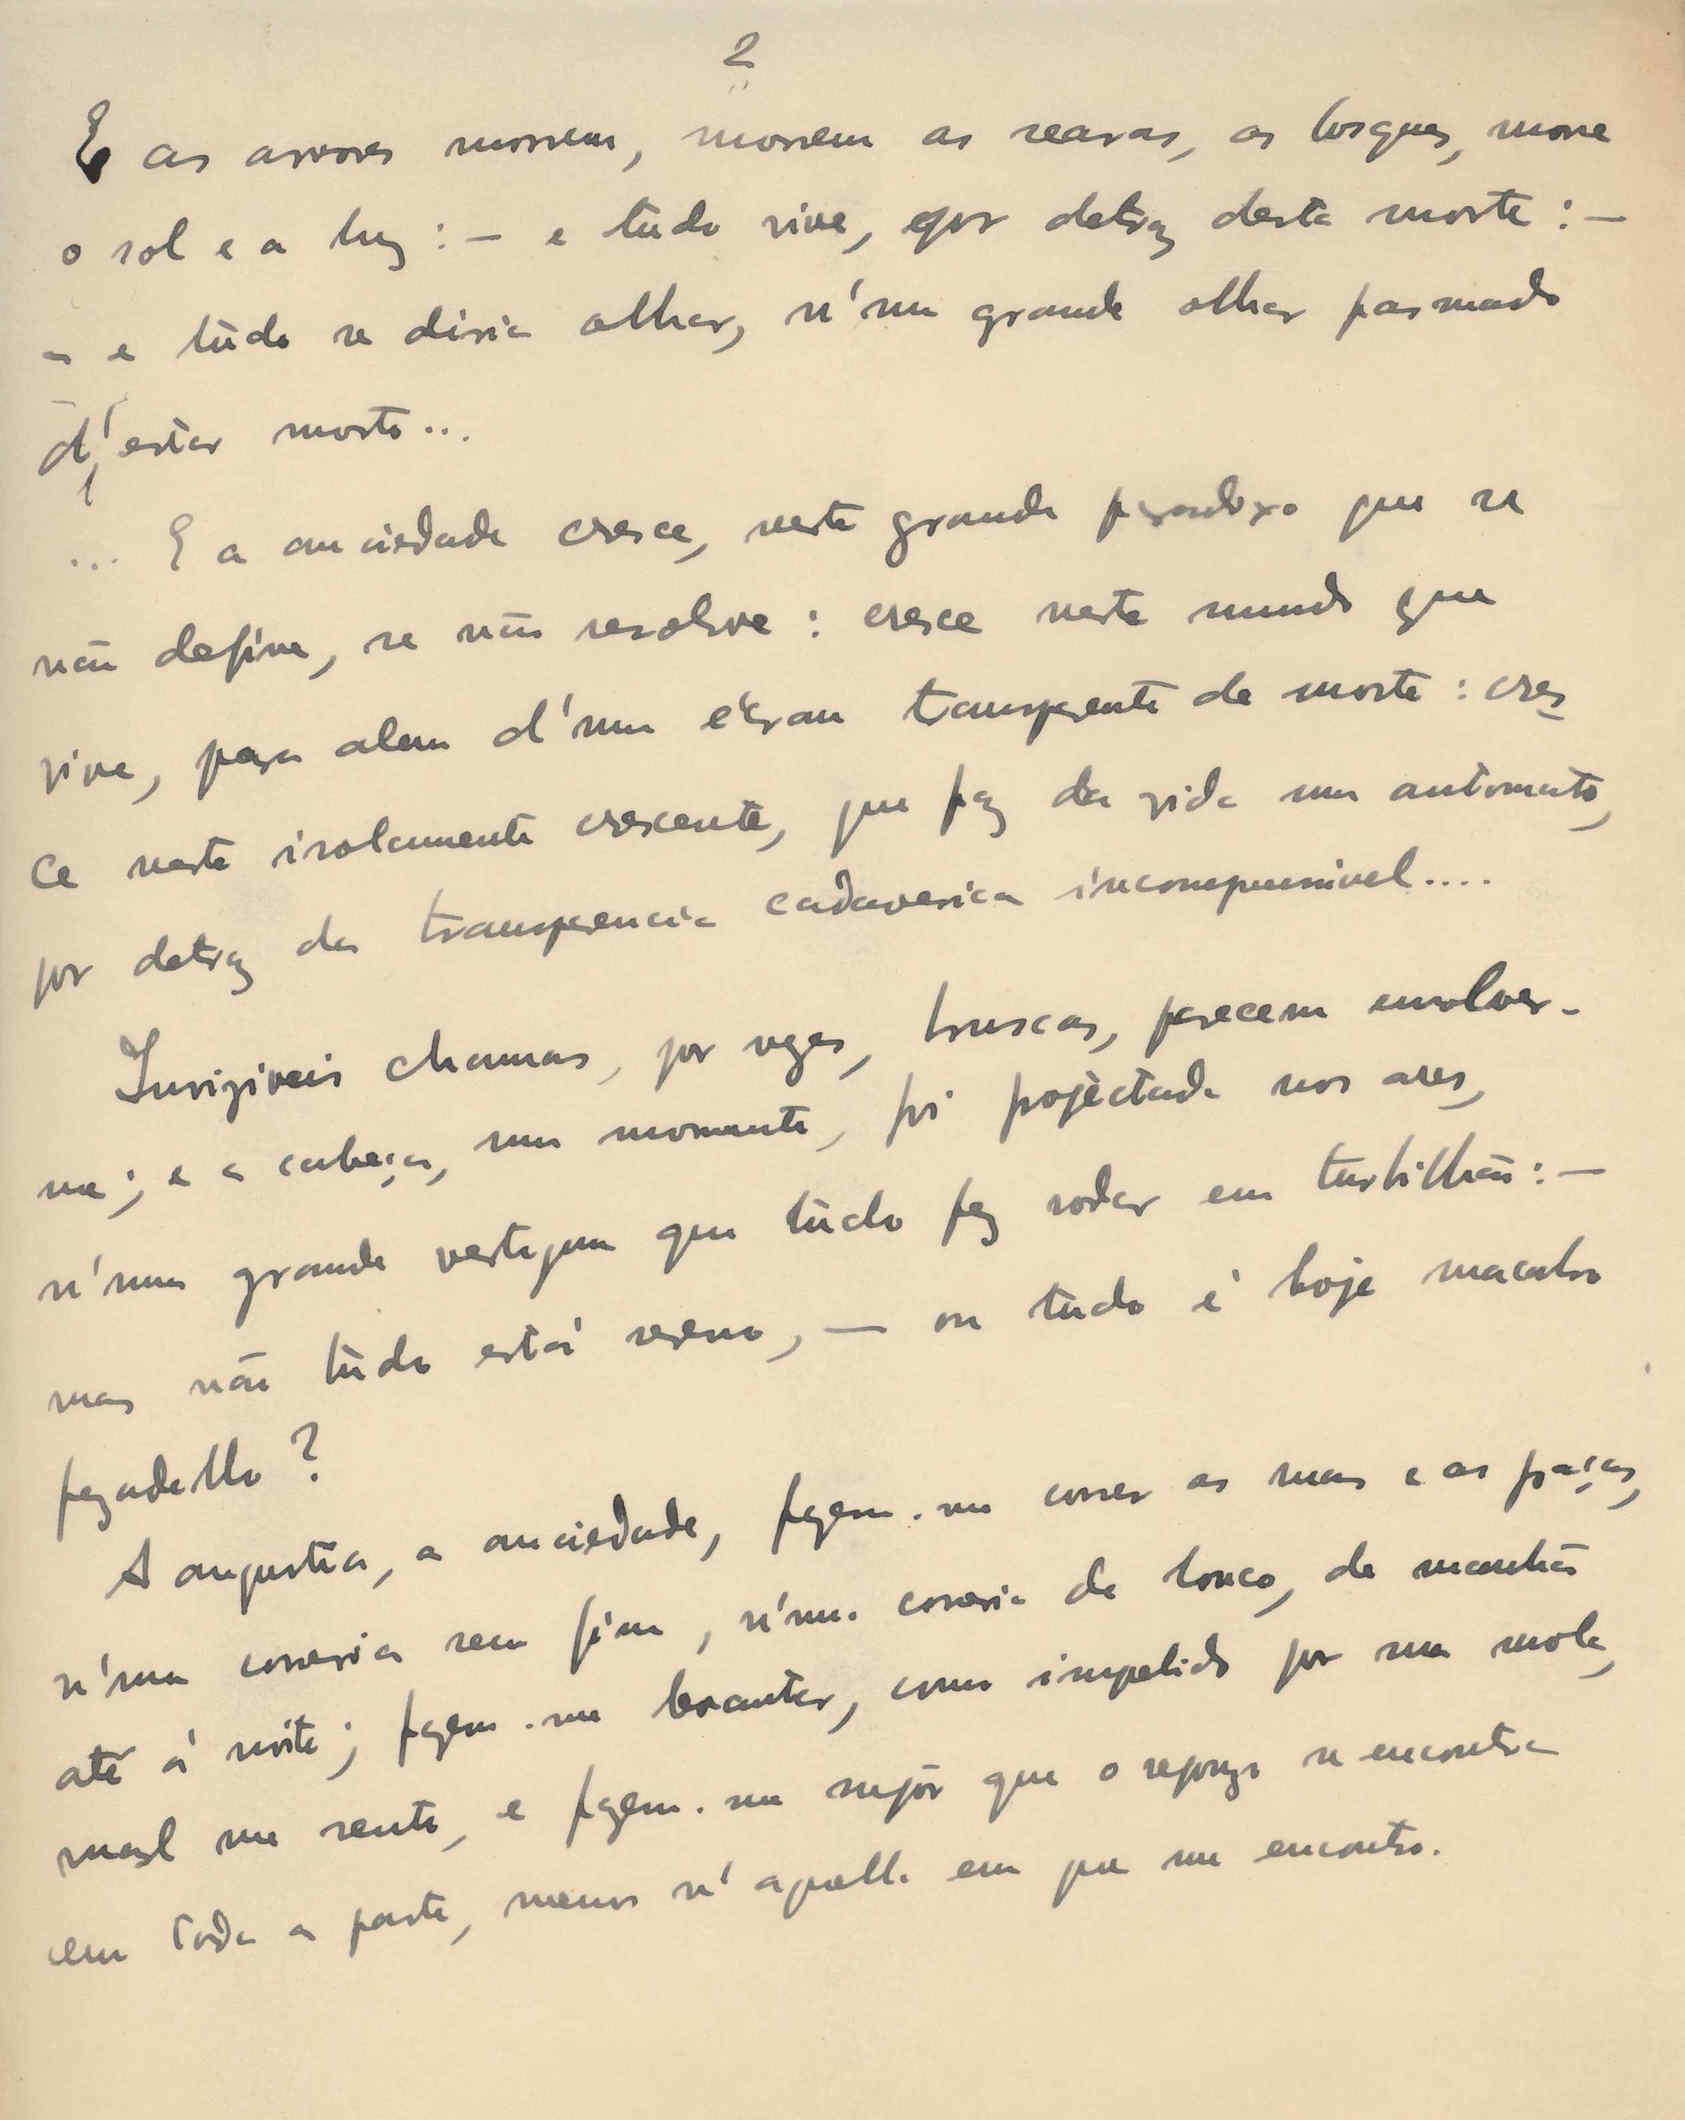 2
E as arvores morrem, morrem as searas, os bosques, morre
o sol e a luz : — e tùdo vive, por detraz desta morte : —
— e tùdo se diria olhar, n'um grande olhar pasmado
d'estar morto...
... E a anciedade cresce, neste grande paradoxo que se
não define, se não resolve : cresce neste mundo que
vive, para alem d'um écran transparente de morte : cres-
ce neste isolamento crescente, que faz da vida um automato,
por detraz da transparencia cadaverica incompreensivel....
Invizíveis chamas, por vezes, bruscas, parecem envolver-
me ; e a cabeça, um momento, foi projèctada nos ares,
n'uma grande vertigem que tùdo fez rodar em turbilhão : —
mas não tùdo está sereno, — ou tùdo é hoje macabro
pezadello ?
A angustia, a anciedade, fazem-me correr as ruas e as praças,
n'uma correria sem fim, n'uma correria de louco, de manhã
até á noite ; fazem-me levantar, como impelido por uma mola,
mal me sento, e fazem-me supôr que o repouzo se encontra
em toda a parte, menos n'aquella em que me encontro.